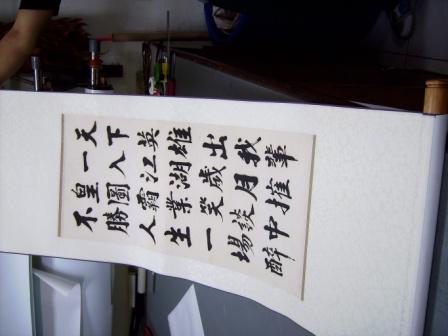 天下英雄出我輩
一入江湖歲月摧
皇圖霸業笑談中
不勝人生一場醉